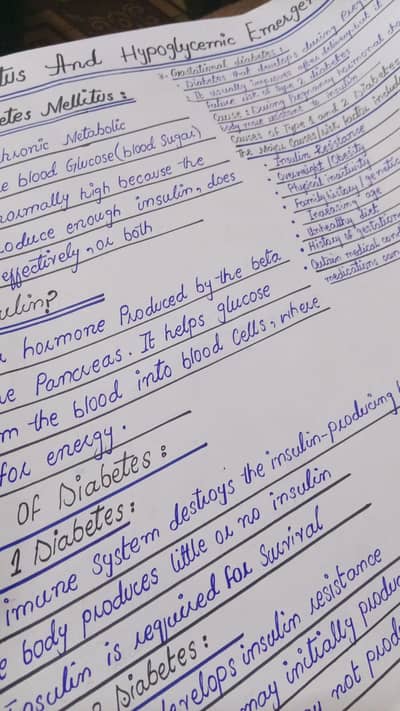 tus And Hypoglycemic Emerge
etes Mellitus:
chronic Metabolic
e blood Glucose (blood Sugar)
normally high because the
roduce enough insulin, does
effectively, or both
ulin?
hormone Produced by the beta
e Pancreas. It helps glucose
m the blood into blood Cells, where
for energy.
Of Diabetes:
1 Diabetes:
imune System destroys the insulin-producing
e body produces little or no insulin
Insulin is required for Survival
Diabetes:
develops insulin resistance
may initially produ
y not prod
Gestational diabetes:
Diabetes that develops during Preg
It usually improves after delivery but
future risk of Type 2 diabetes
Cause: During Pregnancy hormonal cha
body more resistant to insulin
Causes of Type 1 and 2 Diabetes
The Major Causes/risk factors includ
• Insulin Resistance
• Overweight/Obesity
• Physical inactivity
• Family history/genetic
• Increasing age
• Unhealthy diet
• History of gestation
• Certain medical cond
medications can